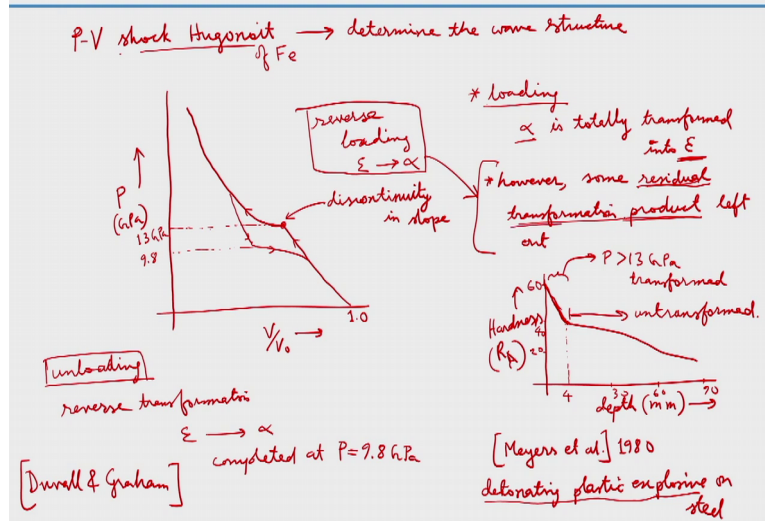 P-V shock Hugonoit → determine the wave structure
of Fe
reverse
loading
ε → α
P
(GPa)
13 GPa
9.8
discontinuity
in slope
V/V₀ →
1.0
* loading
α is totally transformed
into ε
* however, some residual
transformation product left
out
P > 13 GPa
transformed
untransformed.
Hardness
(RA)
60
40
20
4
30
60
90
depth (mm) →
unloading
reverse transformation
ε → α
completed at P = 9.8 GPa
[Duvall & Graham]
[Meyers et al.] 1980
detonating plastic explosive on
steel